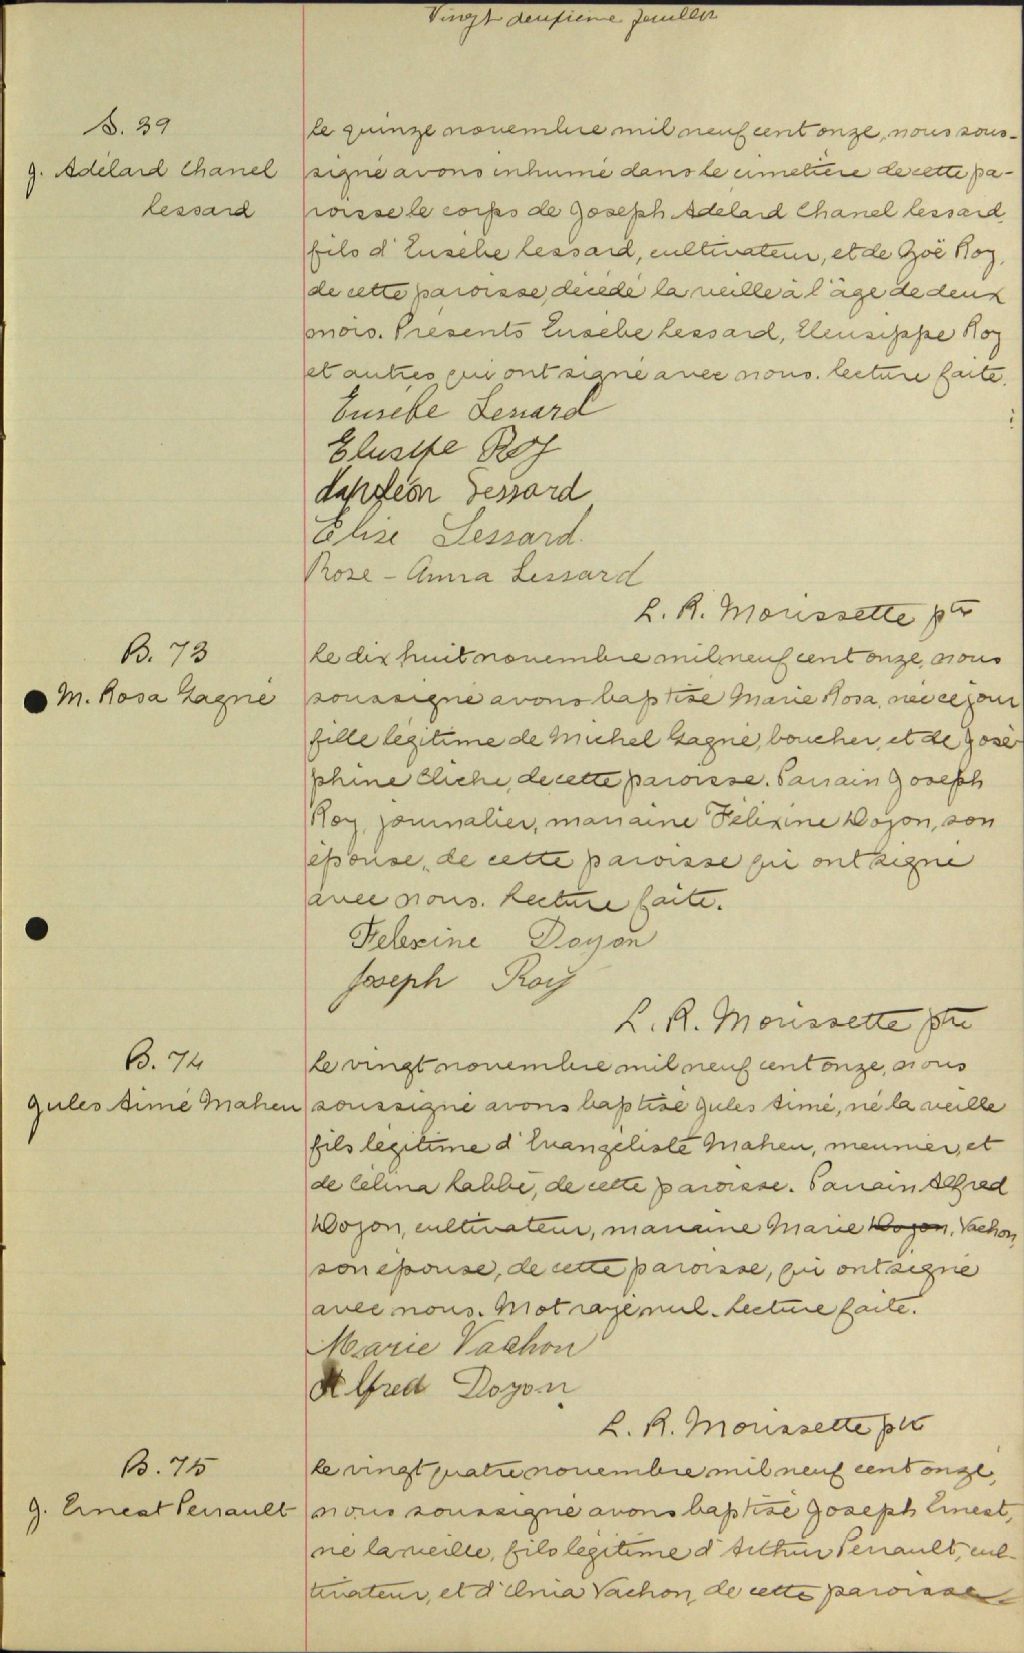 Vingt deuxième feuillet
S. 39
J. Adélard Chanel
Lessard
Le quinze novembre mil neuf cent onze, nous sous-
signé avons inhumé dans le cimetière de cette pa-
roisse le corps de Joseph Adélard Chanel Lessard,
fils d'Eusèbe Lessard, cultivateur, et de Zoë Roy,
de cette paroisse, décédé la veille à l'âge de deux
mois. Présents Eusèbe Lessard, Eleusippe Roy
et autres qui ont signé avec nous. Lecture faite.
Eusébe Lessard
Elusipe Roy
Napoléon Lessard
Elise Lessard.
Rose-Anna Lessard
L. R. Morissette ptre
B. 73
M. Rosa Gagné
Le dix huit novembre mil neuf cent onze, nous
soussigné avons baptisé Marie Rosa, née ce jour
fille légitime de Michel Gagné, boucher, et de José-
phine Cliche, de cette paroisse. Parrain Joseph
Roy, journalier, marraine Félixine Doyon, son
épouse, de cette paroisse qui ont signé
avec nous. Lecture faite.
Felexine Doyon
Joseph Roy
L. R. Morissette ptre
B. 74
Jules Aimé Maheu
Le vingt novembre mil neuf cent onze, nous
soussigné avons baptisé Jules Aimé, né la veille
fils légitime d'Evangéliste Maheu, meunier, et
de Célina Labbé, de cette paroisse. Parrain Alfred
Doyon, cultivateur, marraine Marie Doyon, Vachon,
son épouse, de cette paroisse, qui ont signé
avec nous. Mot rayé nul. Lecture faite.
Marie Vachon
Alfred Doyon
L. R. Morissette ptre
B. 75
J. Ernest Perrault
Le vingt quatre novembre mil neuf cent onze,
nous soussigné avons baptisé Joseph Ernest,
né la veille, fils légitime d'Arthur Perrault, cul-
tivateur, et d'Ania Vachon, de cette paroisse.